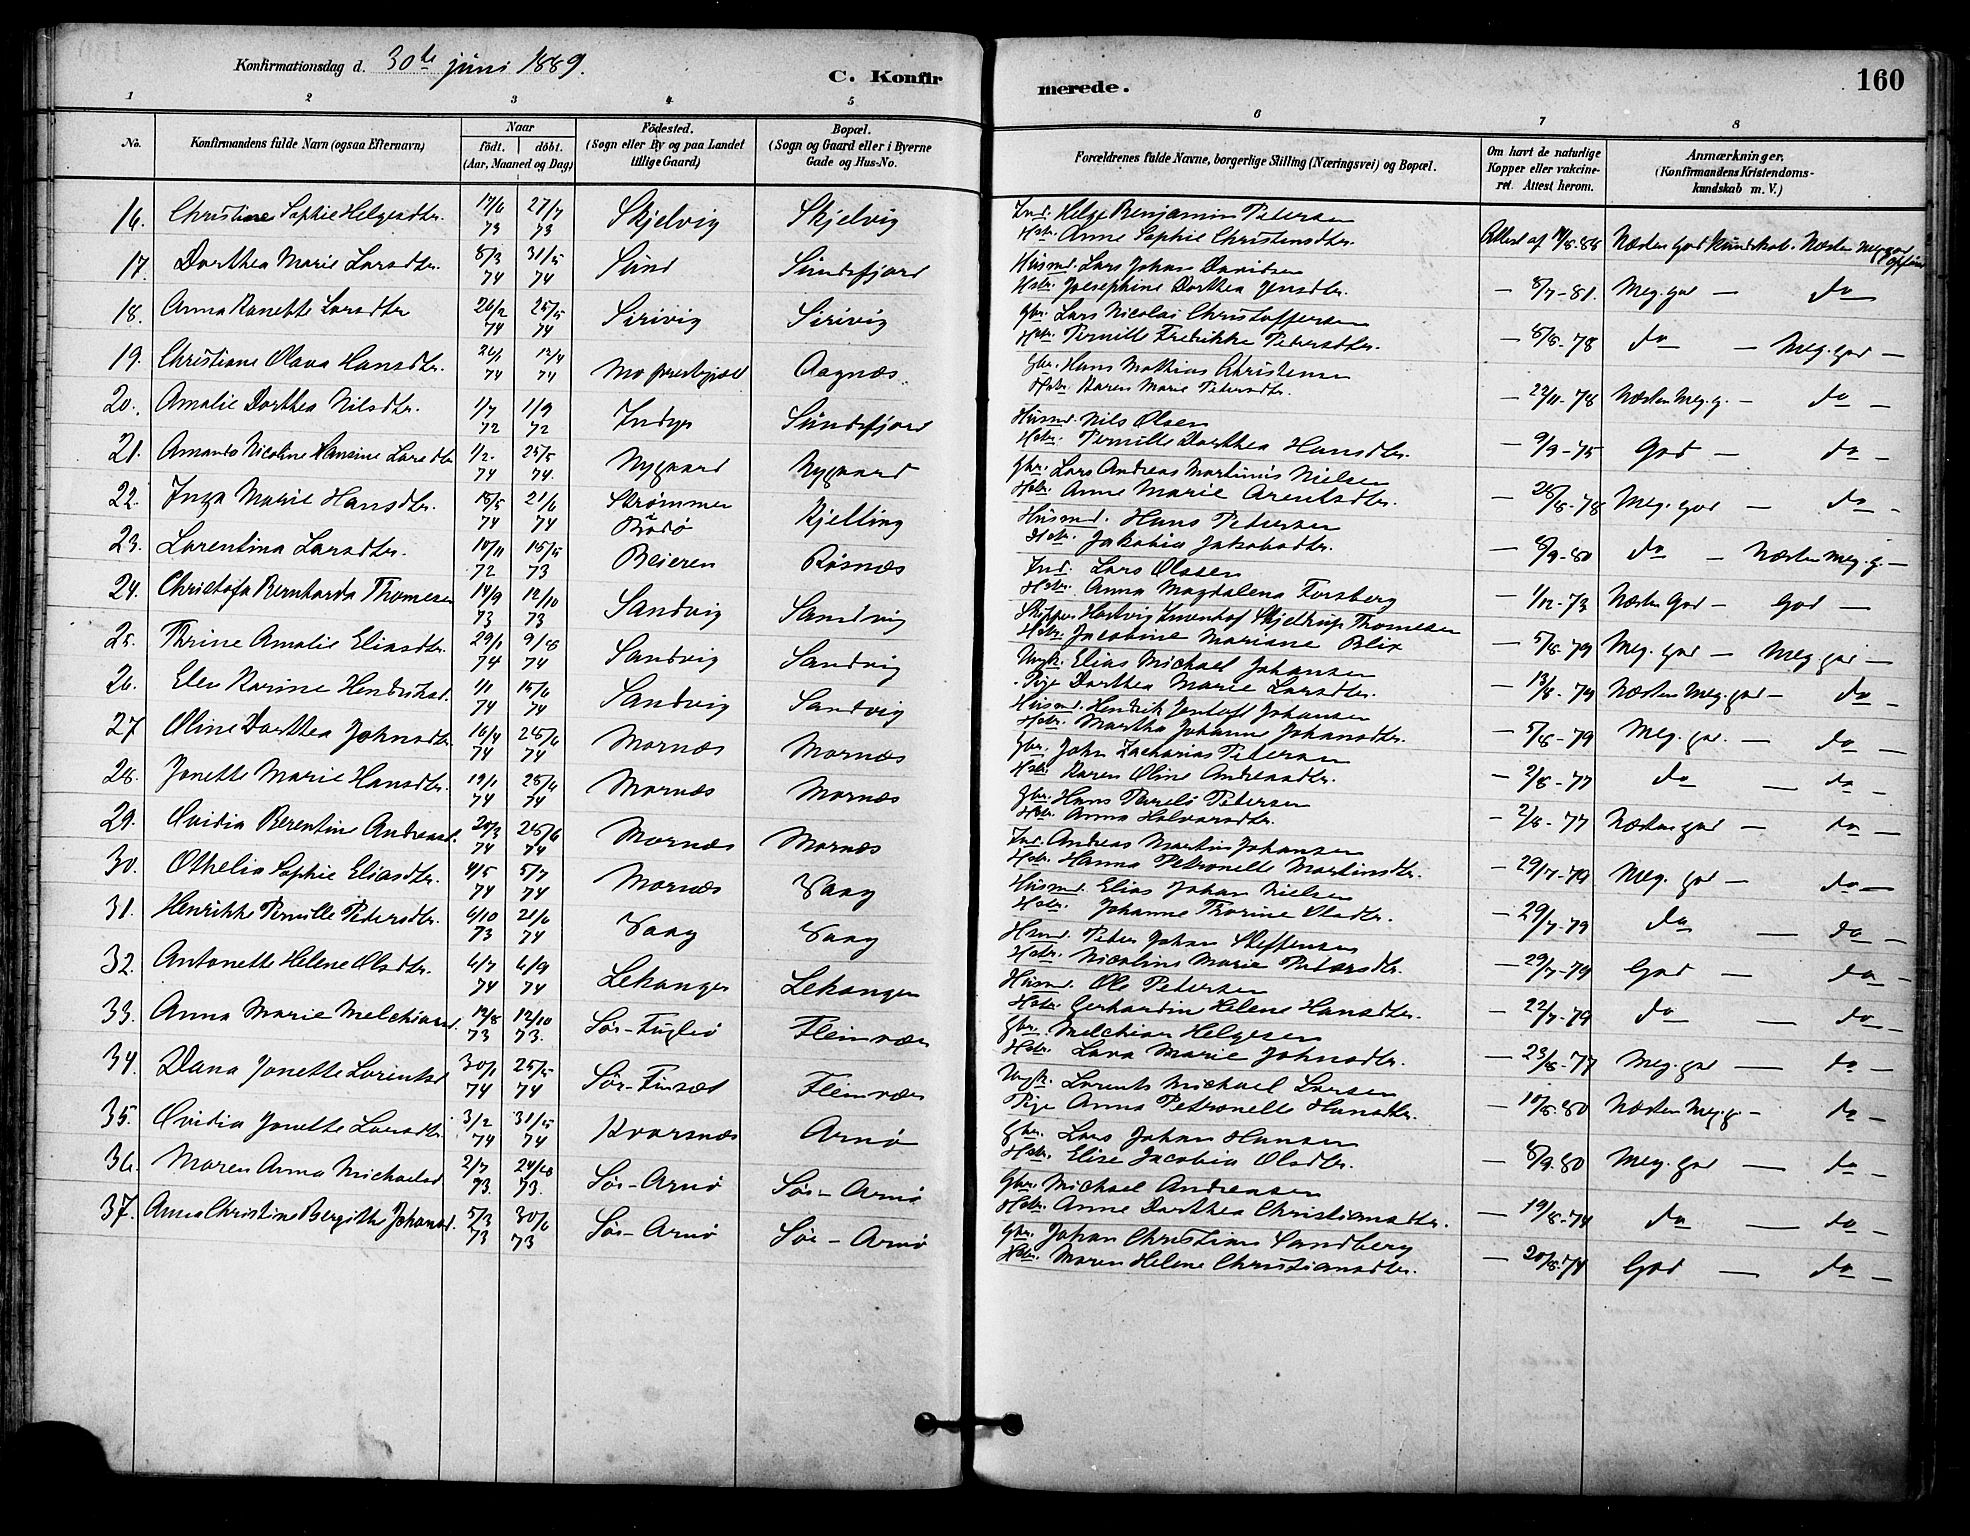 Konfirmationsdag d. 30te juni 1889.
C. Konfirmerede.
160
1 2 3 4 5 6 7 8
No.
Konfirmandens fulde Navn (ogsaa Efternavn)
Naar
födt. döbt.
(Aar, Maaned og Dag)
Födested.
(Sogn eller By og paa Landet
tillige Gaard)
Bopæl.
(Sogn og Gaard eller i Byerne
Gade og Hus-No.
Forældrenes fulde Navne, borgerlige Stilling (Næringsvei) og Bopæl.
Om havt de naturlige
Kopper eller vakcine-
ret. Attest herom.
Anmærkninger.
(Konfirmandens Kristendoms-
kundskab m. V.)
16. Christine Sophie Helgesdtr. 17/6 73 27/7 73 Skjelvig Skjelvig
Ind. Helge Benjamin Petersen
Hstr. Anne Sophie Christensdtr. Næsten God Kundskab. Næsten meg. god
17. Dorthea Marie Larsdtr. 8/3 74 31/5 74 Sund Sundsfjord
Husmd. Lars Johan Davidsen
Hstr. Josephine Dorthea Jensdtr. — 8/7-81. Meg. god — do
18. Anna Hanette Larsdtr 26/2 74 25/5 74 Sirivig Sirivig
Gbr. Lars Nicolai Christoffersen
Hstr. Pernille Fredrikke Pedersdtr. — 8/8-78 do — Meg. god —
19. Christiane Olava Hansdtr. 74 12/4 74 Mo præstegjeld Aagnæs
Gbr. Hans Mathias Christensen
Hstr. Karen Marie Petersdtr. — 22/11-78 Næsten Meg. g. — do —
20. Amalie Dorthea Nilsdtr. 1/7 72 1/9 72 Indyr Sundsfjord
Husmd. Nils Olsen
Hstr. Pernille Dorthea Hansdtr. — 9/9-75 God — do —
21. Amanda Nicoline Hansine Larsdtr 1/2. 74 25/5 74. Nygaard Nygaard
Gbr. Lars Andreas Martinus Nielsen
Hstr. Anne Marie Arentsdtr. — 28/8-78 Meg. god — do —
22. Inga Marie Hansdtr. 15/5 74 21/6 74 Strømmen i Bodø Kjelling
Husmd. Hans Petersen
Hstr. Jakobia Jakobsdtr. — 8/9-80 do — Næsten meg. g. —
23. Larentina Larsdtr. 10/11 72 15/5 73 Beieren Røsnæs
Ind. Lars Olsen
Hstr. Anna Magdalena Forsberg — 1/12-73 Næsten God — God —
24. Christofa Bernharda Thomesen 14/9 73 12/10 73 Sandvig Sandvig
Skipper Hartvig Skjeltrup Thomesen
Hstr. Jacobine Mariane Blix — 5/8-79 Meg. god — Meg god —
25. Thrine Amalie Eliasdtr. 29/1 74 74 Sandvig Sandvig
Ungk. Elias Michael Johansen
Pige Dorthea Marie Larsdtr. — 13/8-79 Næsten meg. god — do —
26. Elen Karine 1/1 74 15/6 74 Sandvig Sandvig
Husmd. Hendrik Jentoft Johansen
Hstr. Martha Johanna Johansdtr. — 5/8-79 Meg. god. — do —
27 Oline Dorthea Johnsdtr. 16/4 74 28/6 74 Mornæs Mornæs
Gbr. John Zacharias Petersen
Hstr. Karen Oline Andreasdtr. — 2/8-77 do — do —
28. Jonette Marie Hansdtr. 19/1 74 28/6 74 Mornæs Mornæs
Gbr. Hans Petersen
Hstr. Anna Halvarsdtr. — 2/8-77 Næsten god — do —
29. Ovidia Berentine Andreasd. 20/3 74 28/6 74 Mornæs Mornæs
Ind. Andreas Martin Johansen
Hstr. Hanna Petronelle Martinsdtr. — 29/7-79 Meg. god — do —
30. Othelia Sophie Eliasdtr. 4/5 74 5/7 74 Mornæs Vaag
Husmd. Elias Johan Nielsen
Hstr. Johanne Thorine Olsdtr. — 29/7-79 do — do —
31. Henrikke Pernille Petersdtr. 6/10 73 21/6 74 Vaag Vaag
Hsmd. Peter Johan Steffensen
Hstr. Nicoline Marie Petersdtr. — 29/7-79 God — do —
32. Antonette Helene Olsdtr. 6/7 74 6/9 74 Lekanger Lekanger
Husmd. Ole Petersen
Hstr. Gerhardin Helene Hansdtr. — 22/7-79 do — do —
33. Anna Marie Melchiord. 12/8 73 12/10 73. Sør-Fuglø Fleinvær
Gbr. Melchior Helgesen
Hstr. Lava Marie Johnsdtr. — 23/8-77 Meg. god — do —
34. Dana Jonette Lorentsd 30/1 74 25/5 74 Fleinvær
Ungk. Lorents Michael Larsen
Pige Anna Petronelle Hansdtr. — 10/8-80 Næsten meg. g — do —
35. Ovidia Jonette Larsdtr. 3/2 74 31/5 74 Kvarsnæs Arnø
Gbr. Lars Johan Hansen
Hstr. Elise Jacobia Olsdtr. — 8/9-80 Meg. god — do —
36. Maren Anna Michaelsd 2/7 73. 24/8 73. Sør-Arnø Sør-Arnø
Gbr. Michael Andreasen
Hstr. Anne Dorthea Christiansdtr. — 19/8-74 do — do —
37. Anne Christine Bergithe Johansd. 5/3 73 30/6 73 Sør-Arnø Sør-Arnø
Gbr. Johan Christian Sandberg
Hstr. Maren Helene Christiansdtr. — 20/8-74 God — do —